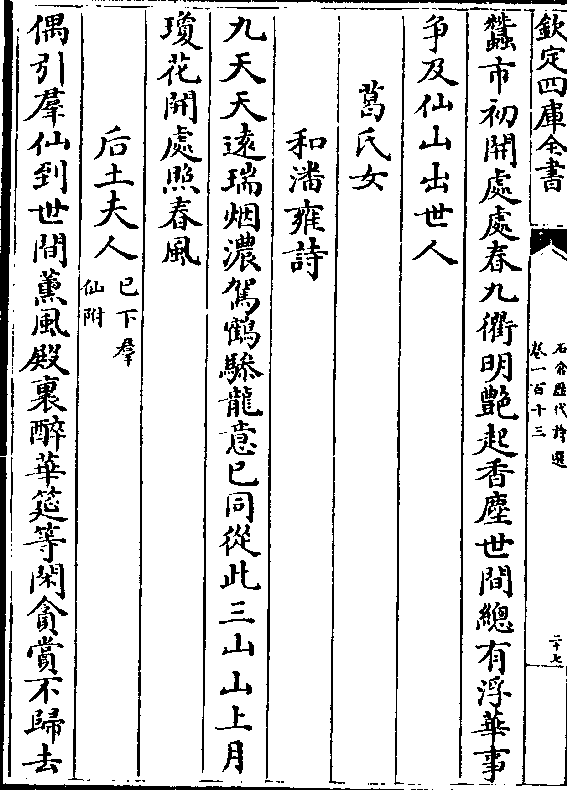 欽定四庫全書
石倉歷代詩選
卷一百十三
二十七
蠶市初開處處春九衢明艷起香塵世間總有浮華事
爭及仙山出世人
葛氏女
和潘雍詩
九天天遠瑞烟濃駕鶴驂龍意已同從此三山山上月
瓊花開處照春風
后土夫人
已下羣
仙附
偶引羣仙到世間薰風殿裏醉華筵等閑貪賞不歸去